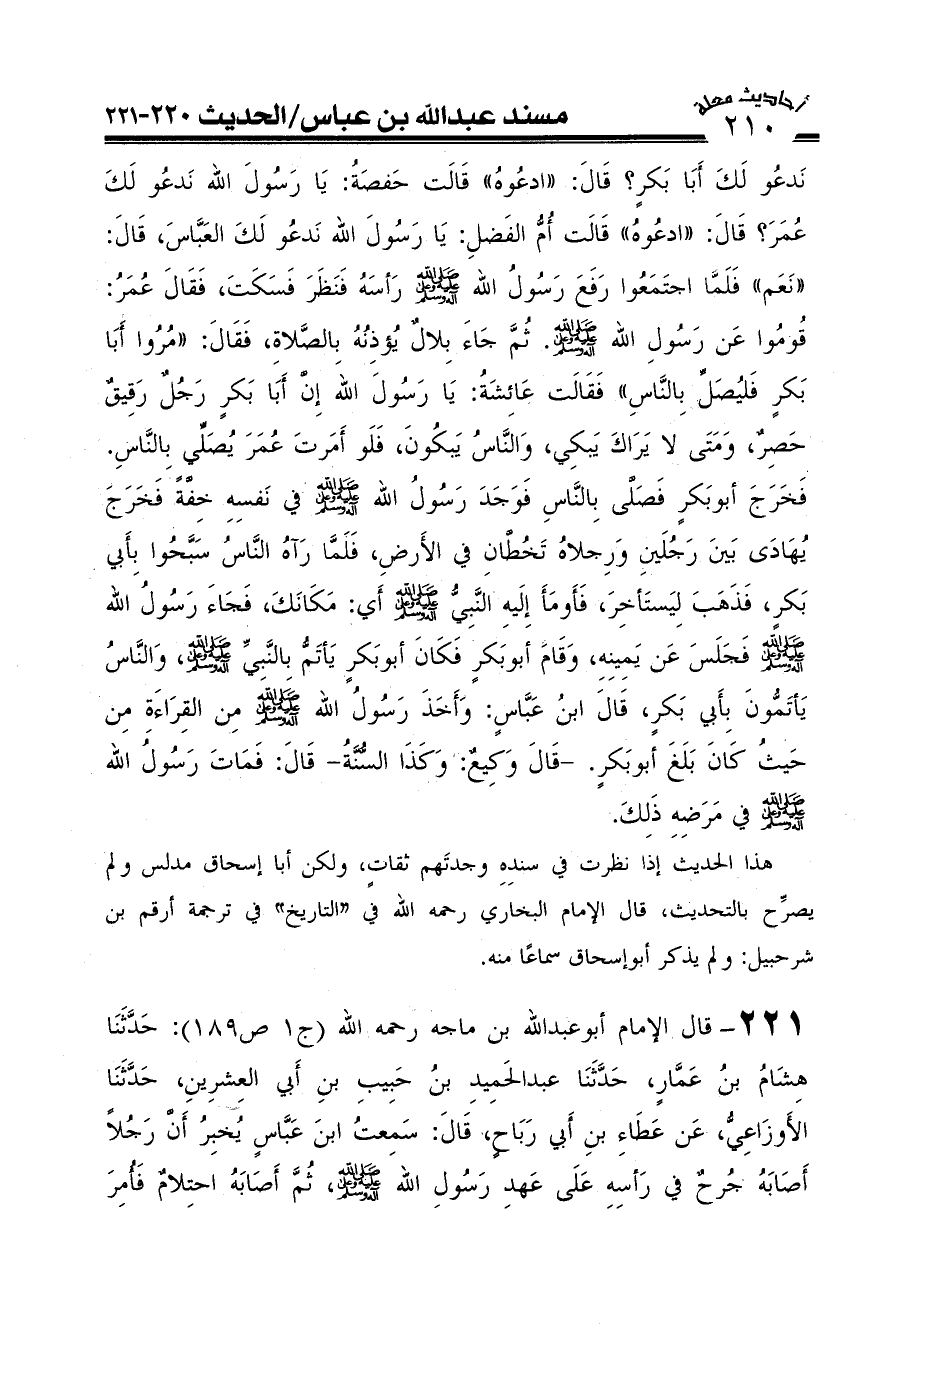 أحاديث معلة
٢١٠
مسند عبدالله بن عباس/الحديث ٢٢٠-٢٢١
نَدعُو لَكَ أَبَا بَكرٍ؟ قَالَ: «ادعُوهُ» قَالَت حَفصَةُ: يَا رَسُولَ الله نَدعُو لَكَ
عُمَرَ؟ قَالَ: «ادعُوهُ» قَالَت أُمُّ الفَضلِ: يَا رَسُولَ الله نَدعُو لَكَ العَبَّاسَ، قَالَ:
«نَعَم» فَلَمَّا اجتَمَعُوا رَفَعَ رَسُولُ الله ﷺ رَأسَهُ فَنَظَرَ فَسَكَتَ، فَقَالَ عُمَرُ:
قُومُوا عَن رَسُولِ الله ﷺ. ثُمَّ جَاءَ بِلالٌ يُؤذِنُهُ بِالصَّلاةِ، فَقَالَ: «مُرُوا أَبَا
بَكرٍ فَليُصَلِّ بِالنَّاسِ» فَقَالَت عَائِشَةُ: يَا رَسُولَ الله إِنَّ أَبَا بَكرٍ رَجُلٌ رَقِيقٌ
حَصِرٌ، وَمَتَى لا يَرَاكَ يَبكِي، وَالنَّاسُ يَبكُونَ، فَلَو أَمَرتَ عُمَرَ يُصَلِّي بِالنَّاسِ.
فَخَرَجَ أبوبَكرٍ فَصَلَّى بِالنَّاسِ فَوَجَدَ رَسُولُ الله ﷺ فِي نَفسِهِ خِفَّةً فَخَرَجَ
يُهَادَى بَينَ رَجُلَينِ وَرِجلاهُ تَخُطَّانِ فِي الأَرضِ، فَلَمَّا رَآهُ النَّاسُ سَبَّحُوا بِأَبِي
بَكرٍ، فَذَهَبَ لِيَستَأخِرَ، فَأَومَأَ إِلَيهِ النَّبِيُّ ﷺ أَي: مَكَانَكَ، فَجَاءَ رَسُولُ الله
ﷺ فَجَلَسَ عَن يَمِينِهِ، وَقَامَ أبوبَكرٍ فَكَانَ أبوبَكرٍ يَأتَمُّ بِالنَّبِيِّ ﷺ، وَالنَّاسُ
يَأتَمُّونَ بِأَبِي بَكرٍ، قَالَ ابنُ عَبَّاسٍ: وَأَخَذَ رَسُولُ الله ﷺ مِن القِرَاءَةِ مِن
حَيثُ كَانَ بَلَغَ أبوبَكرٍ. -قَالَ وَكِيعٌ: وَكَذَا السُّنَّةُ- قَالَ: فَمَاتَ رَسُولُ الله
ﷺ فِي مَرَضِهِ ذَلِكَ.
هذا الحديث إذا نظرت في سندِهِ وجدتَهم ثقاتٍ، ولكن أبا إسحاق مدلس ولم
يصرِّح بالتحديث، قال الإمام البخاري رحمه الله في «التاريخ» في ترجمة أرقم بن
شرحبيل: ولم يذكر أبوإسحاق سماعًا منه.
٢٢١- قال الإمام أبوعبدالله بن ماجه رحمه الله (ج١ ص١٨٩): حَدَّثَنَا
هِشَامُ بنُ عَمَّارٍ، حَدَّثَنَا عبدالحَمِيدِ بنُ حَبِيبِ بنِ أَبِي العِشرِينَ، حَدَّثَنَا
الأَوزَاعِيُّ، عَن عَطَاءِ بنِ أَبِي رَبَاحٍ، قَالَ: سَمِعتُ ابنَ عَبَّاسٍ يُخبِرُ أَنَّ رَجُلاً
أَصَابَهُ جُرحٌ فِي رَأسِهِ عَلَى عَهدِ رَسُولِ الله ﷺ، ثُمَّ أَصَابَهُ احتِلامٌ فَأُمِرَ